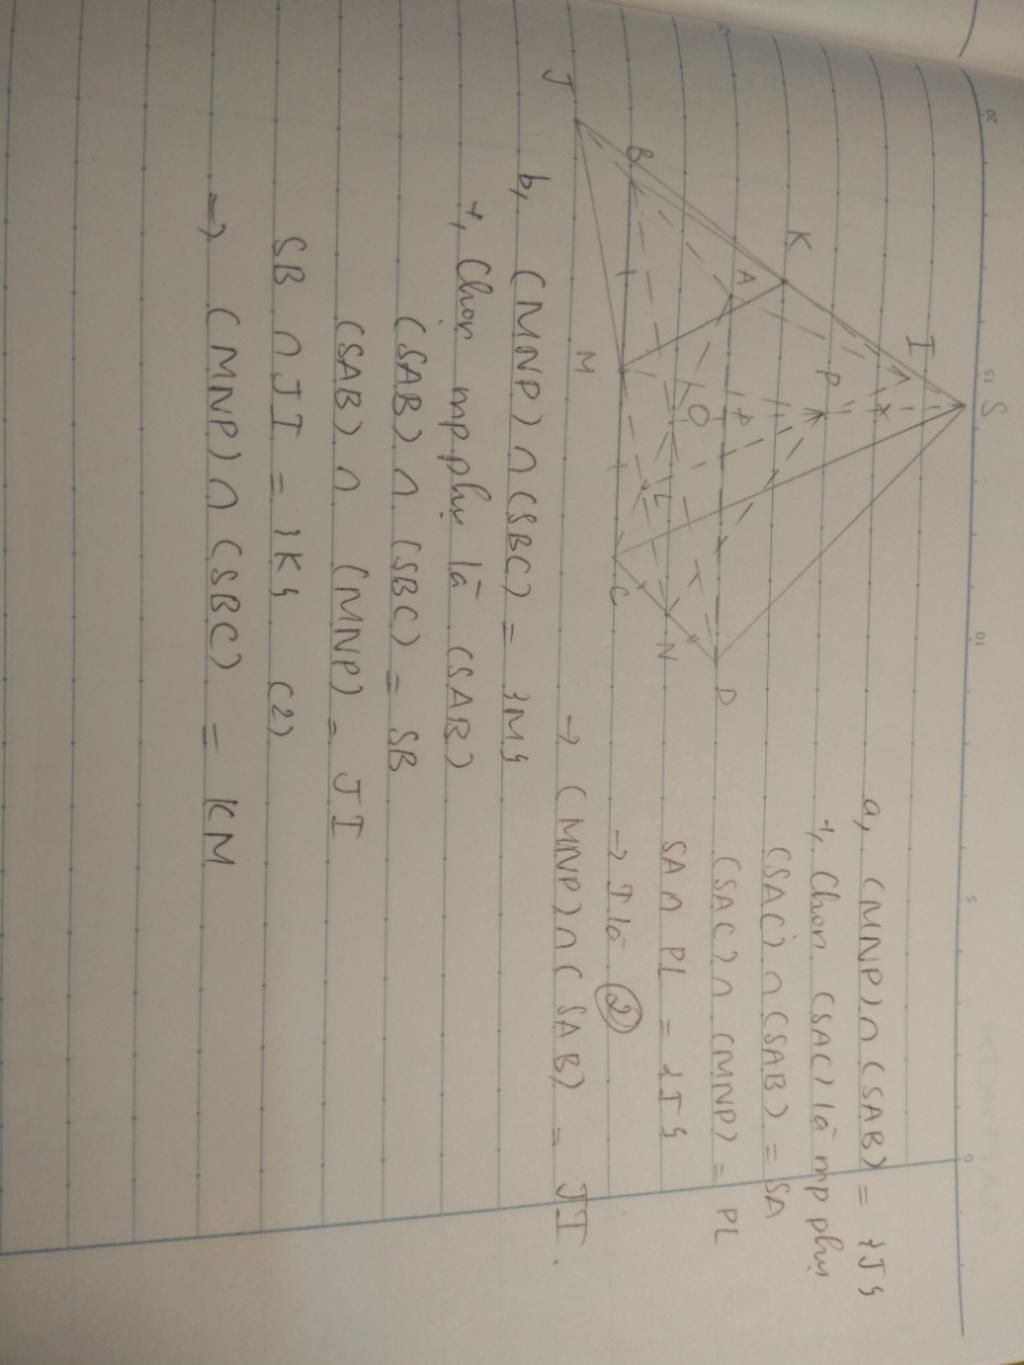 S
I
K
P
A
B
J
O
P
M
L
C
N
D
a, (MNP) ∩ (SAB) = {J}
+, Chọn (SAC) là mp phụ
(SAC) ∩ (SAB) = SA
(SAC) ∩ (MNP) = PL
SA ∩ PL = {I}
→ I là ②
→ (MNP) ∩ (SAB) = JI.
b, (MNP) ∩ (SBC) = {M}
+, Chọn mp phụ là (SAB)
(SAB) ∩ (SBC) = SB
(SAB) ∩ (MNP) = JI
SB ∩ JI = {K} (2)
=> (MNP) ∩ (SBC) = KM
20
15
10
5
0